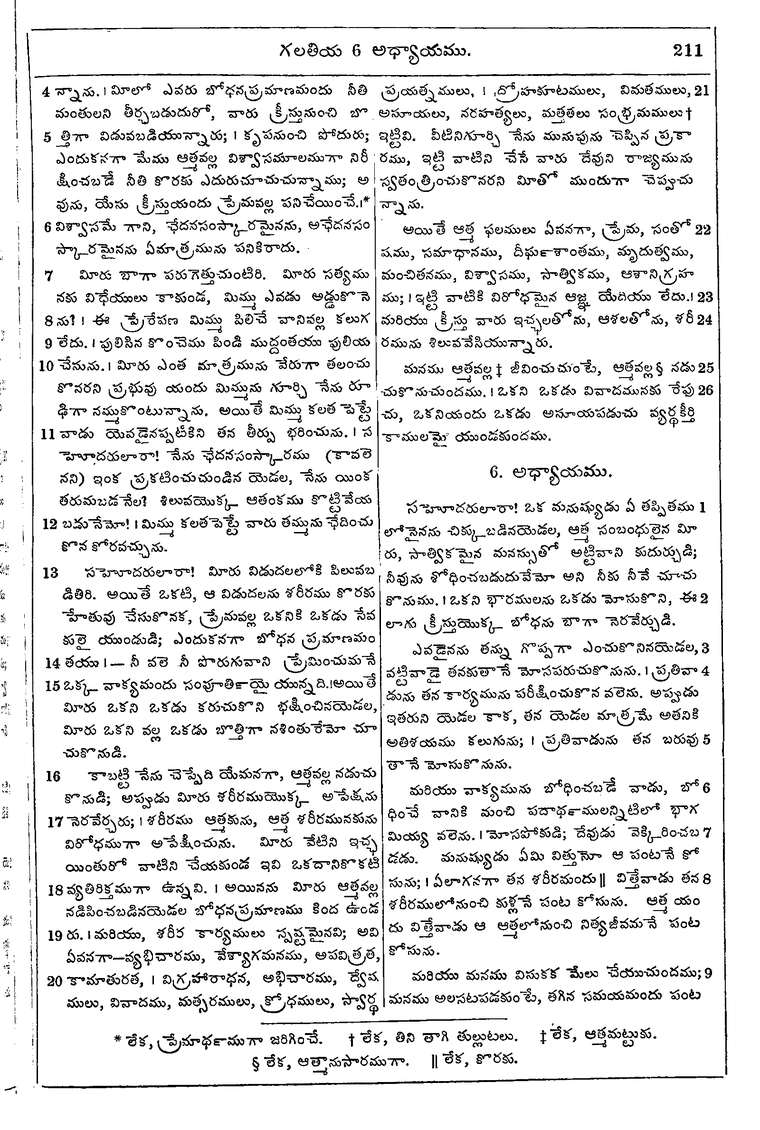 గలతీయ 6 అధ్యాయము. 211
4 న్నాను. । మీలో ఎవరు బోధనప్రమాణమందు నీతి
మంతులని తీర్చబడుదురో, వారు క్రీస్తునుంచి బొ
5 త్తిగా విడువబడియున్నారు; । కృపనుంచి పోదురు;
ఎందుకనగా మేము ఆత్మవల్ల విశ్వాసమూలముగా నిరీ
క్షించబడే నీతి కొరకు ఎదురుచూచుచున్నాము; అ
వును, యేసు క్రీస్తుయందు ప్రేమవల్ల పనిచేయించే।*
6 విశ్వాసమే గాని, ఛేదనసంస్కారమైనను, అఛేదనసం
స్కారమైనను ఏమాత్రమును పనికిరాదు.
7 మీరు బాగా పరుగెత్తుచుంటిరి. మీరు సత్యము
నకు విధేయులు కాకుండ, మిమ్ము ఎవడు అడ్డుకొనె
8 ను? । ఈ ప్రేరేపణ మిమ్ము పిలిచే వానివల్ల కలుగ
9 లేదు. । పులిసిన కొంచెము పిండి ముద్దంతయు పులియ
10 చేసును. । మీరు ఎంత మాత్రమును వేరుగా తలంచు
కొనరని ప్రభువు యందు మిమ్మును గూర్చి నేను రూ
ఢిగా నమ్ముకొంటున్నాను. అయితే మిమ్ము కలత పెట్టే
11 వాడు యెవడైనప్పటికిని తన తీర్పు భరించును. । స
హోదరులారా! నేను ఛేదనసంస్కారము (కావలె
నని) ఇంక ప్రకటించుచుండిన యెడల, నేను యింక
తరుమబడ నేల? శిలువయొక్క ఆతంకము కొట్టివేయ
12 బడునేమో! । మిమ్ము కలతపెట్టే వారు తమ్మును ఛేదించు
కొన కోరవచ్చును.
13 సహోదరులారా! మీరు విడుదలలోకి పిలువబ
డితిరి. అయితే ఒకటి, ఆ విడుదలను శరీరము కొరకు
హేతువు చేసుకొనక, ప్రేమవల్ల ఒకనికి ఒకడు సేవ
కులై యుండుడి; ఎందుకనగా బోధన ప్రమాణమం
14 తయు ।— నీ వలె నీ పొరుగువాని ప్రేమించుమనే
15 ఒక్క వాక్యమందు సంపూర్తియై యున్నది. । అయితే
మీరు ఒకని ఒకడు కరుచుకొని భక్షించినయెడల,
మీరు ఒకని వల్ల ఒకడు బొత్తిగా నశింతురేమో చూ
చుకొనుడి.
16 కాబట్టి నేను చెప్పేది యేమనగా, ఆత్మవల్ల నడుచు
కొనుడి; అప్పుడు మీరు శరీరముయొక్క అపేక్షను
17 నెరవేర్చరు; । శరీరము ఆత్మకును, ఆత్మ శరీరమునకును
విరోధముగా అపేక్షించును. మీరు వేటిని ఇచ్ఛ
యింతురో వాటిని చేయకుండ ఇవి ఒకదానికొకటి
18 వ్యతిరిక్తముగా ఉన్నవి. । అయినను మీరు ఆత్మవల్ల
నడిపించబడినయెడల బోధనప్రమాణము కింద ఉండ
19 రు. । మరియు, శరీర కార్యములు స్పష్టమైనవి; అవి
ఏవనగా—వ్యభిచారము, వేశ్యాగమనము, అపవిత్రత,
20 కామాతురత, । విగ్రహారాధన, అభిచారము, ద్వేష
ములు, వివాదము, మత్సరములు, క్రోధములు, స్వార్థ
ప్రయత్నములు, । ద్రోహకూటములు, విమతములు, 21
అసూయలు, నరహత్యలు, మత్తతలు సంభ్రమములు†
ఇట్టివి. వీటినిగూర్చి నేను మునుపును చెప్పిన ప్రకా
రము, ఇట్టి వాటిని చేసే వారు దేవుని రాజ్యమును
స్వతంత్రించుకొనరని మీతో ముందుగా చెప్పుచు
న్నాను.
అయితే ఆత్మ ఫలములు ఏవనగా, ప్రేమ, సంతో 22
షము, సమాధానము, దీర్ఘశాంతము, మృదుత్వము,
మంచితనము, విశ్వాసము, సాత్వికము, ఆశానిగ్రహ
ము; । ఇట్టి వాటికి విరోధమైన ఆజ్ఞ యేదియు లేదు. । 23
మరియు క్రీస్తు వారు ఇచ్ఛలతోను, ఆశలతోను, శరీ 24
రమును శిలువవేసియున్నారు.
మనము ఆత్మవల్ల‡ జీవించుచుంటే, ఆత్మవల్ల§ నడు 25
చుకొనుచుందము. । ఒకని ఒకడు వివాదమునకు రేపు 26
చు, ఒకనియందు ఒకడు అసూయపడుచు వ్యర్థకీర్తి
కాములమై యుండకుందము.
6. అధ్యాయము.
సహోదరులారా! ఒక మనుష్యుడు ఏ తప్పితము 1
లోనైనను చిక్కుబడినయెడల, ఆత్మ సంబంధులైన మీ
రు, సాత్వికమైన మనస్సుతో అట్టివాని కుదుర్చుడి;
నీవును శోధించబడుదువేమో అని నీకు నీవే చూచు
కొనుము. । ఒకని భారములను ఒకడు మోసుకొని, ఈ 2
లాగు క్రీస్తుయొక్క బోధను బాగా నెరవేర్చుడి.
ఎవడైనను తన్ను గొప్పగా ఎంచుకొనినయెడల, 3
వట్టివాడై తనకుతానే మోసపరుచుకొనును. । ప్రతివా 4
డును తన కార్యమును పరీక్షించుకొన వలెను. అప్పుడు
ఇతరుని యెడల కాక, తన యెడల మాత్రమే అతనికి
అతిశయము కలుగును; । ప్రతివాడును తన బరువు 5
తానే మోసుకొనును.
మరియు వాక్యమును బోధించబడే వాడు, బో 6
ధించే వానికి మంచి పదార్థములన్నిటిలో భాగ
మియ్య వలెను. । మోసపోకుడి; దేవుడు వెక్కిరించబ 7
డడు. మనుష్యుడు ఏమి విత్తునో ఆ పంటనే కో
సును; । ఏలాగనగా తన శరీరమందు‖ విత్తేవాడు తన 8
శరీరములోనుంచి కుళ్లనే పంట కోసును. ఆత్మ యం
దు విత్తేవాడు ఆ ఆత్మలోనుంచి నిత్యజీవమనే పంట
కోసును.
మరియు మనము విసుకక మేలు చేయుచుందము; 9
మనము అలసటపడకుంటే, తగిన సమయమందు పంట
* లేక, ప్రేమార్థముగా జరిగించే. † లేక, తిని తాగి తుల్లుటలు. ‡ లేక, ఆత్మమట్టుకు.
§ లేక, ఆత్మానుసారముగా. ‖ లేక, కొరకు.